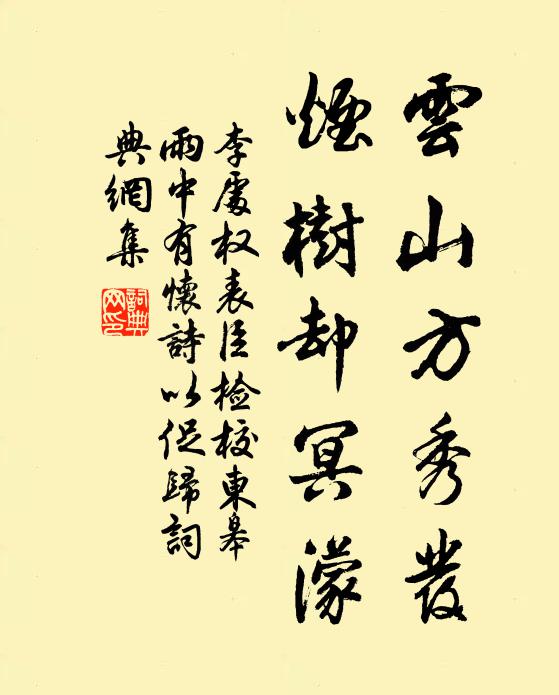 雲山方秀發
煙樹却冥濛
李處权表臣检校東皋
雨中有懷詩以促歸詞
典網集
詞典
网印